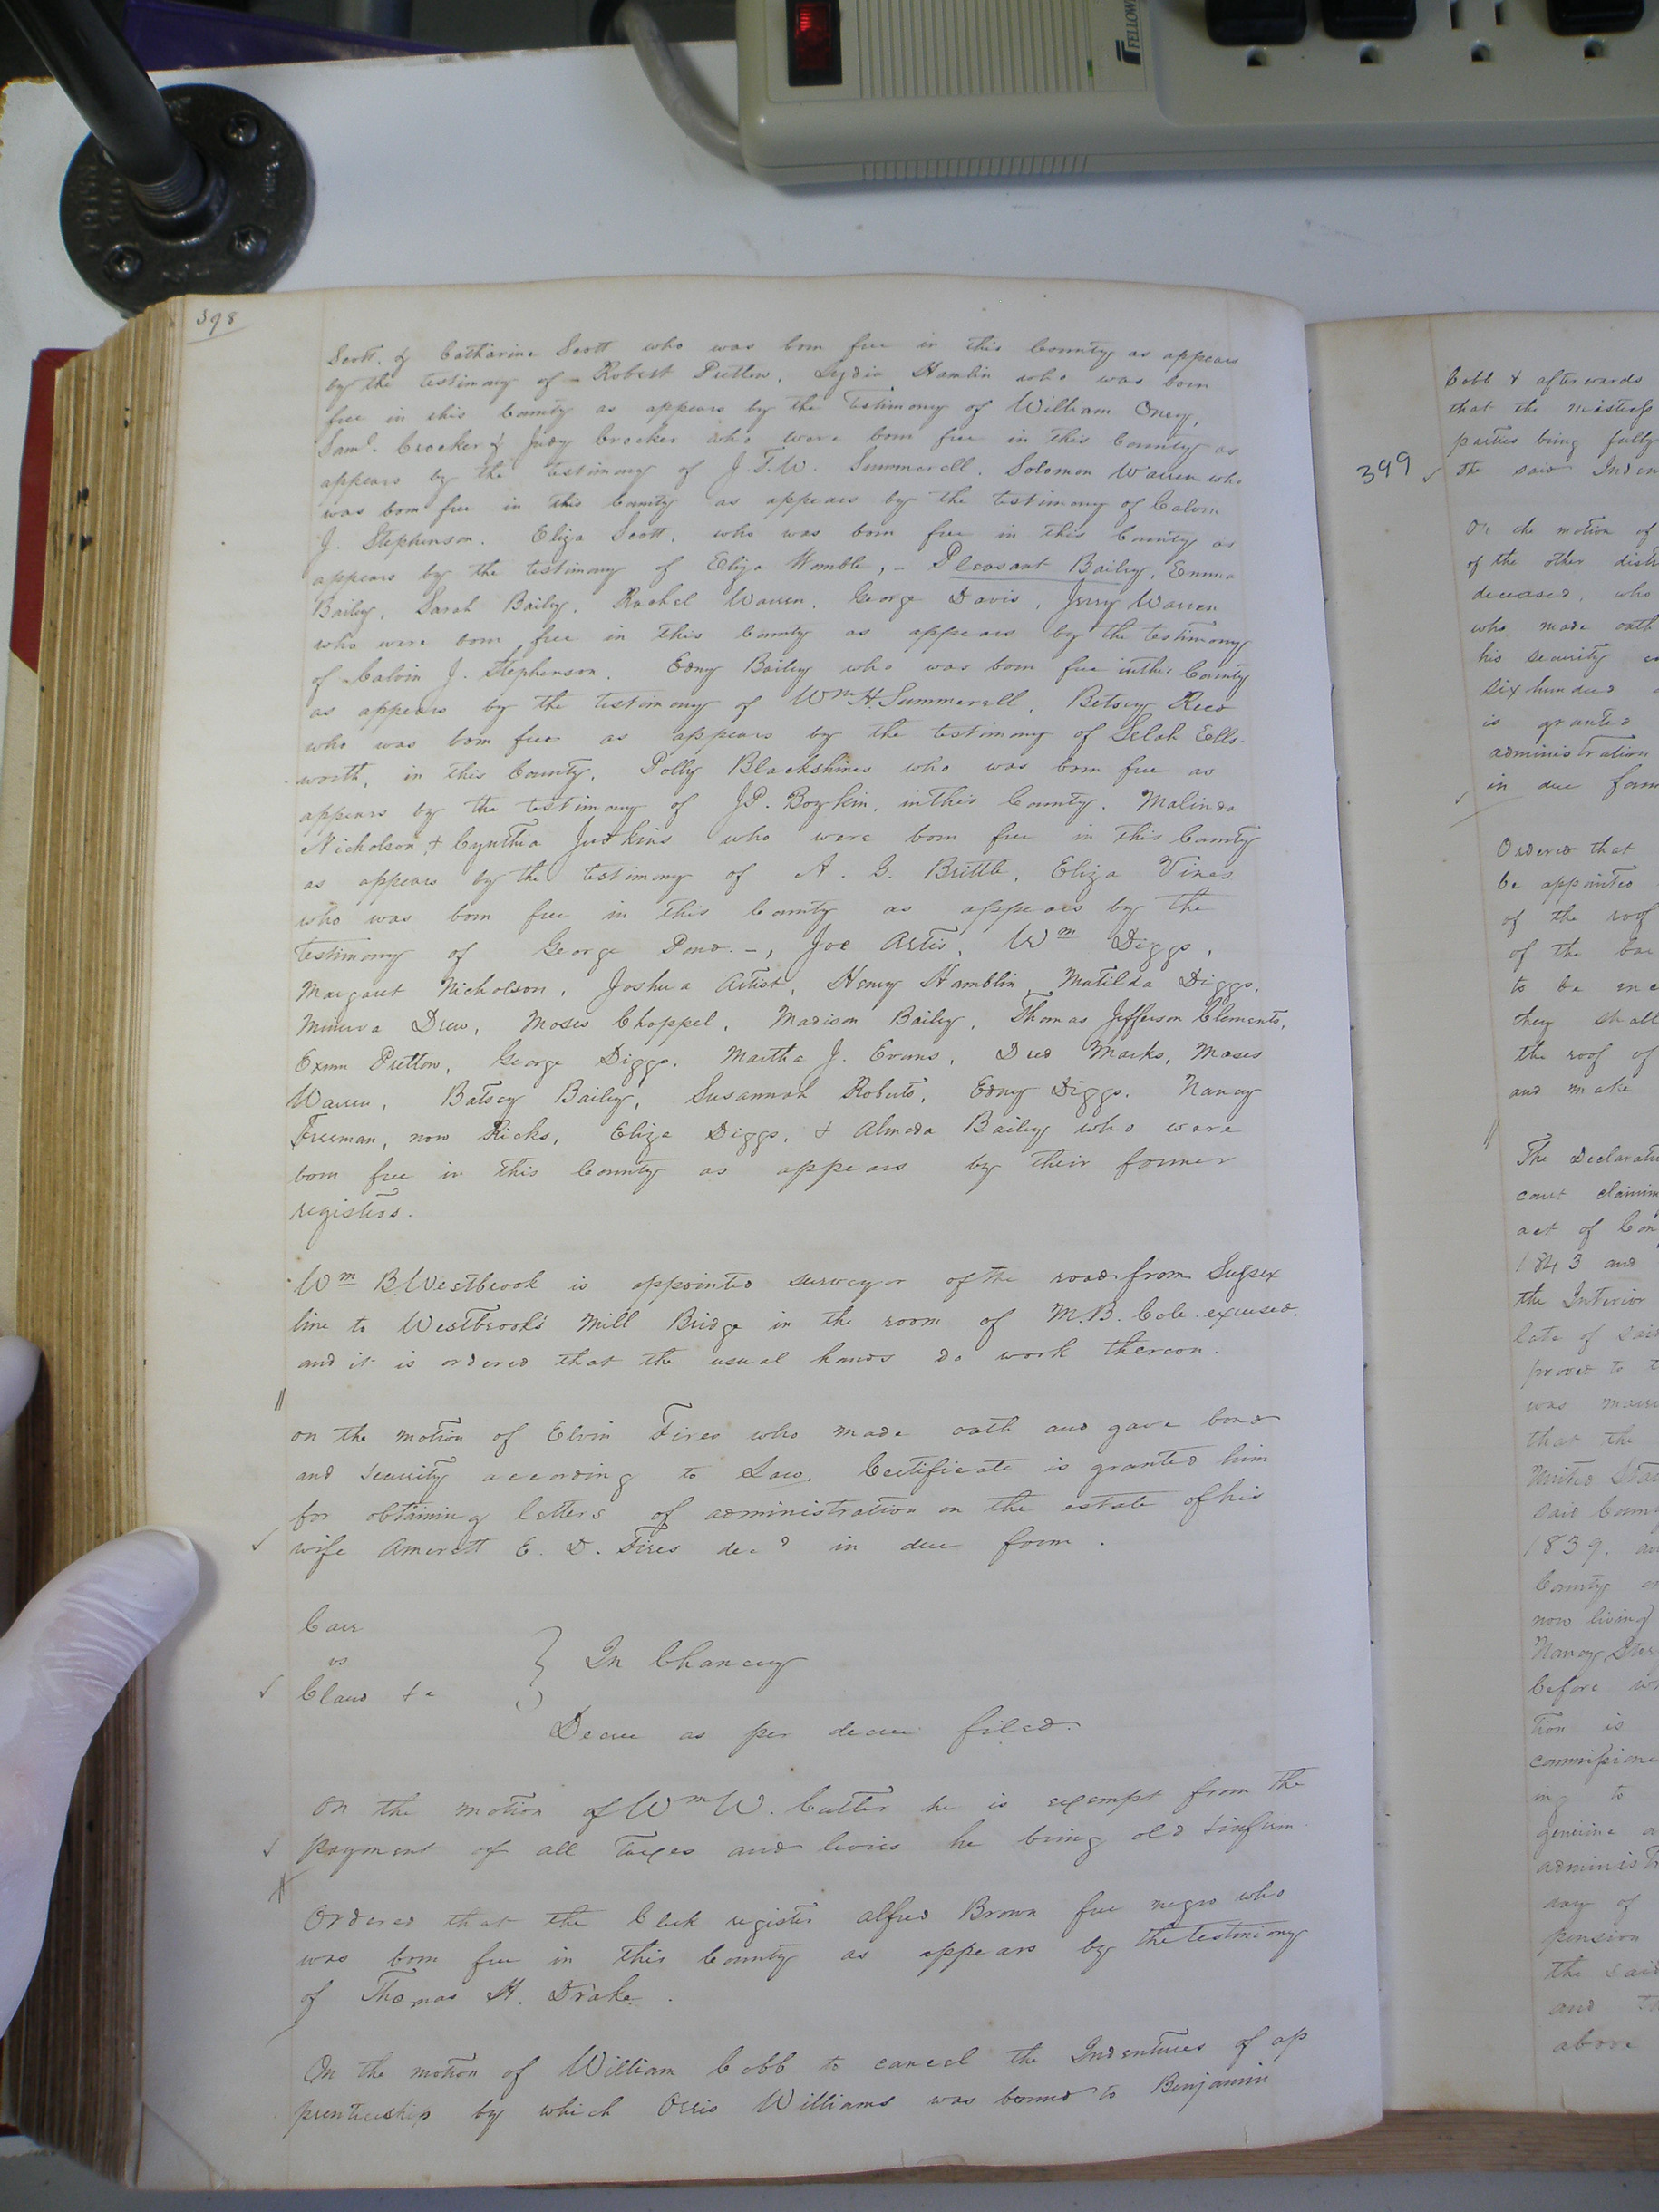 FELLOWES
398
Scott, & Catharine Scott who was born free in this County as appears
by the testimony of - Robert Pretlow, Lydia Hamlin who was born
free in this County as appears by the testimony of William Oney,
Saml. Crocker & Judy Crocker who were born free in this County as
appears by the testimony of J. T. W. Summerell. Solomon Warren who
was born free in this County as appears by the testimony of Calvin
J. Stephenson. Eliza Scott, who was born free in this County as
appears by the testimony of Eliza Womble, - Pleasant Bailey, Emma
Bailey, Sarah Bailey, Rachel Warren, George Davis, Jerry Warren
who were born free in this County as appears by the testimony
of Calvin J. Stephenson. Edny Bailey who was born free in this County
as appears by the testimony of Wm H. Summerell, Betsey Reed
who was born free as appears by the testimony of Selah Ells-
worth, in this County. Polly Blackshines who was born free as
appears by the testimony of J.P. Boykin, in this County. Malinda
Nicholson, & Cynthia Judkins who were born free in this County
as appears by the testimony of A. G. Brittle, Eliza Vines
who was born free in this County as appears by the
testimony of George Pond. -, Joe Artis, Wm Diggs,
Margaret Nicholson, Joshua Artist, Henry Hamblin, Matilda Diggs,
Minerva Drew, Moses Chappel, Madison Bailey, Thomas Jefferson Clements,
Exum Pretlow, George Diggs, Martha J. Evans, Dred Marks, Moses
Warren, Batsey Bailey, Susannah Roberts, Edny Diggs, Nancy
Freeman, now Ricks, Eliza Diggs, & Almeda Bailey who were
born free in this County as appears by their former
registers.
Wm B. Westbrook is appointed surveyor of the road from Sussex
line to Westbrook's Mill Bridge in the room of M. B. Cole excused.
and it is ordered that the usual hands do work thereon.
On the motion of Elvin Fires who made oath and gave bond
and security according to Law. Certificate is granted him
for obtaining letters of administration on the estate of his
wife Amerett E. D. Fires decd in due form.
Carr
vs
Claud &c
} In Chancery
Decree as per decree filed.
On the motion of Wm W. Cutler he is exempt from the
payment of all Taxes and levies he being old & infirm.
Ordered that the Clerk register Alfred Brown free negro who
was born free in this County as appears by the testimony
of Thomas H. Drake.
On the motion of William Cobb to cancel the Indentures of ap
prenticeship by which Orris Williams was bound to Benjamin
399
Cobb & afterwards
that the
parties being fully
the said Inden
On the motion of
of the other dist
deceased, who
who made oath
his security
six hundred
is granted
administration
in due form
Ordered that
be appointed
of the roof
of the
to be
they shall
the roof of
and make
The Declarati
court claimin
act of Con
1843 and
the Interior
late of said
proved to t
was marri
that the
United Sta
said Coun
1839. an
County
now living
Nancy
before
tion is
commissione
ing to
genuine a
administ
day of
pension
the said
and
above